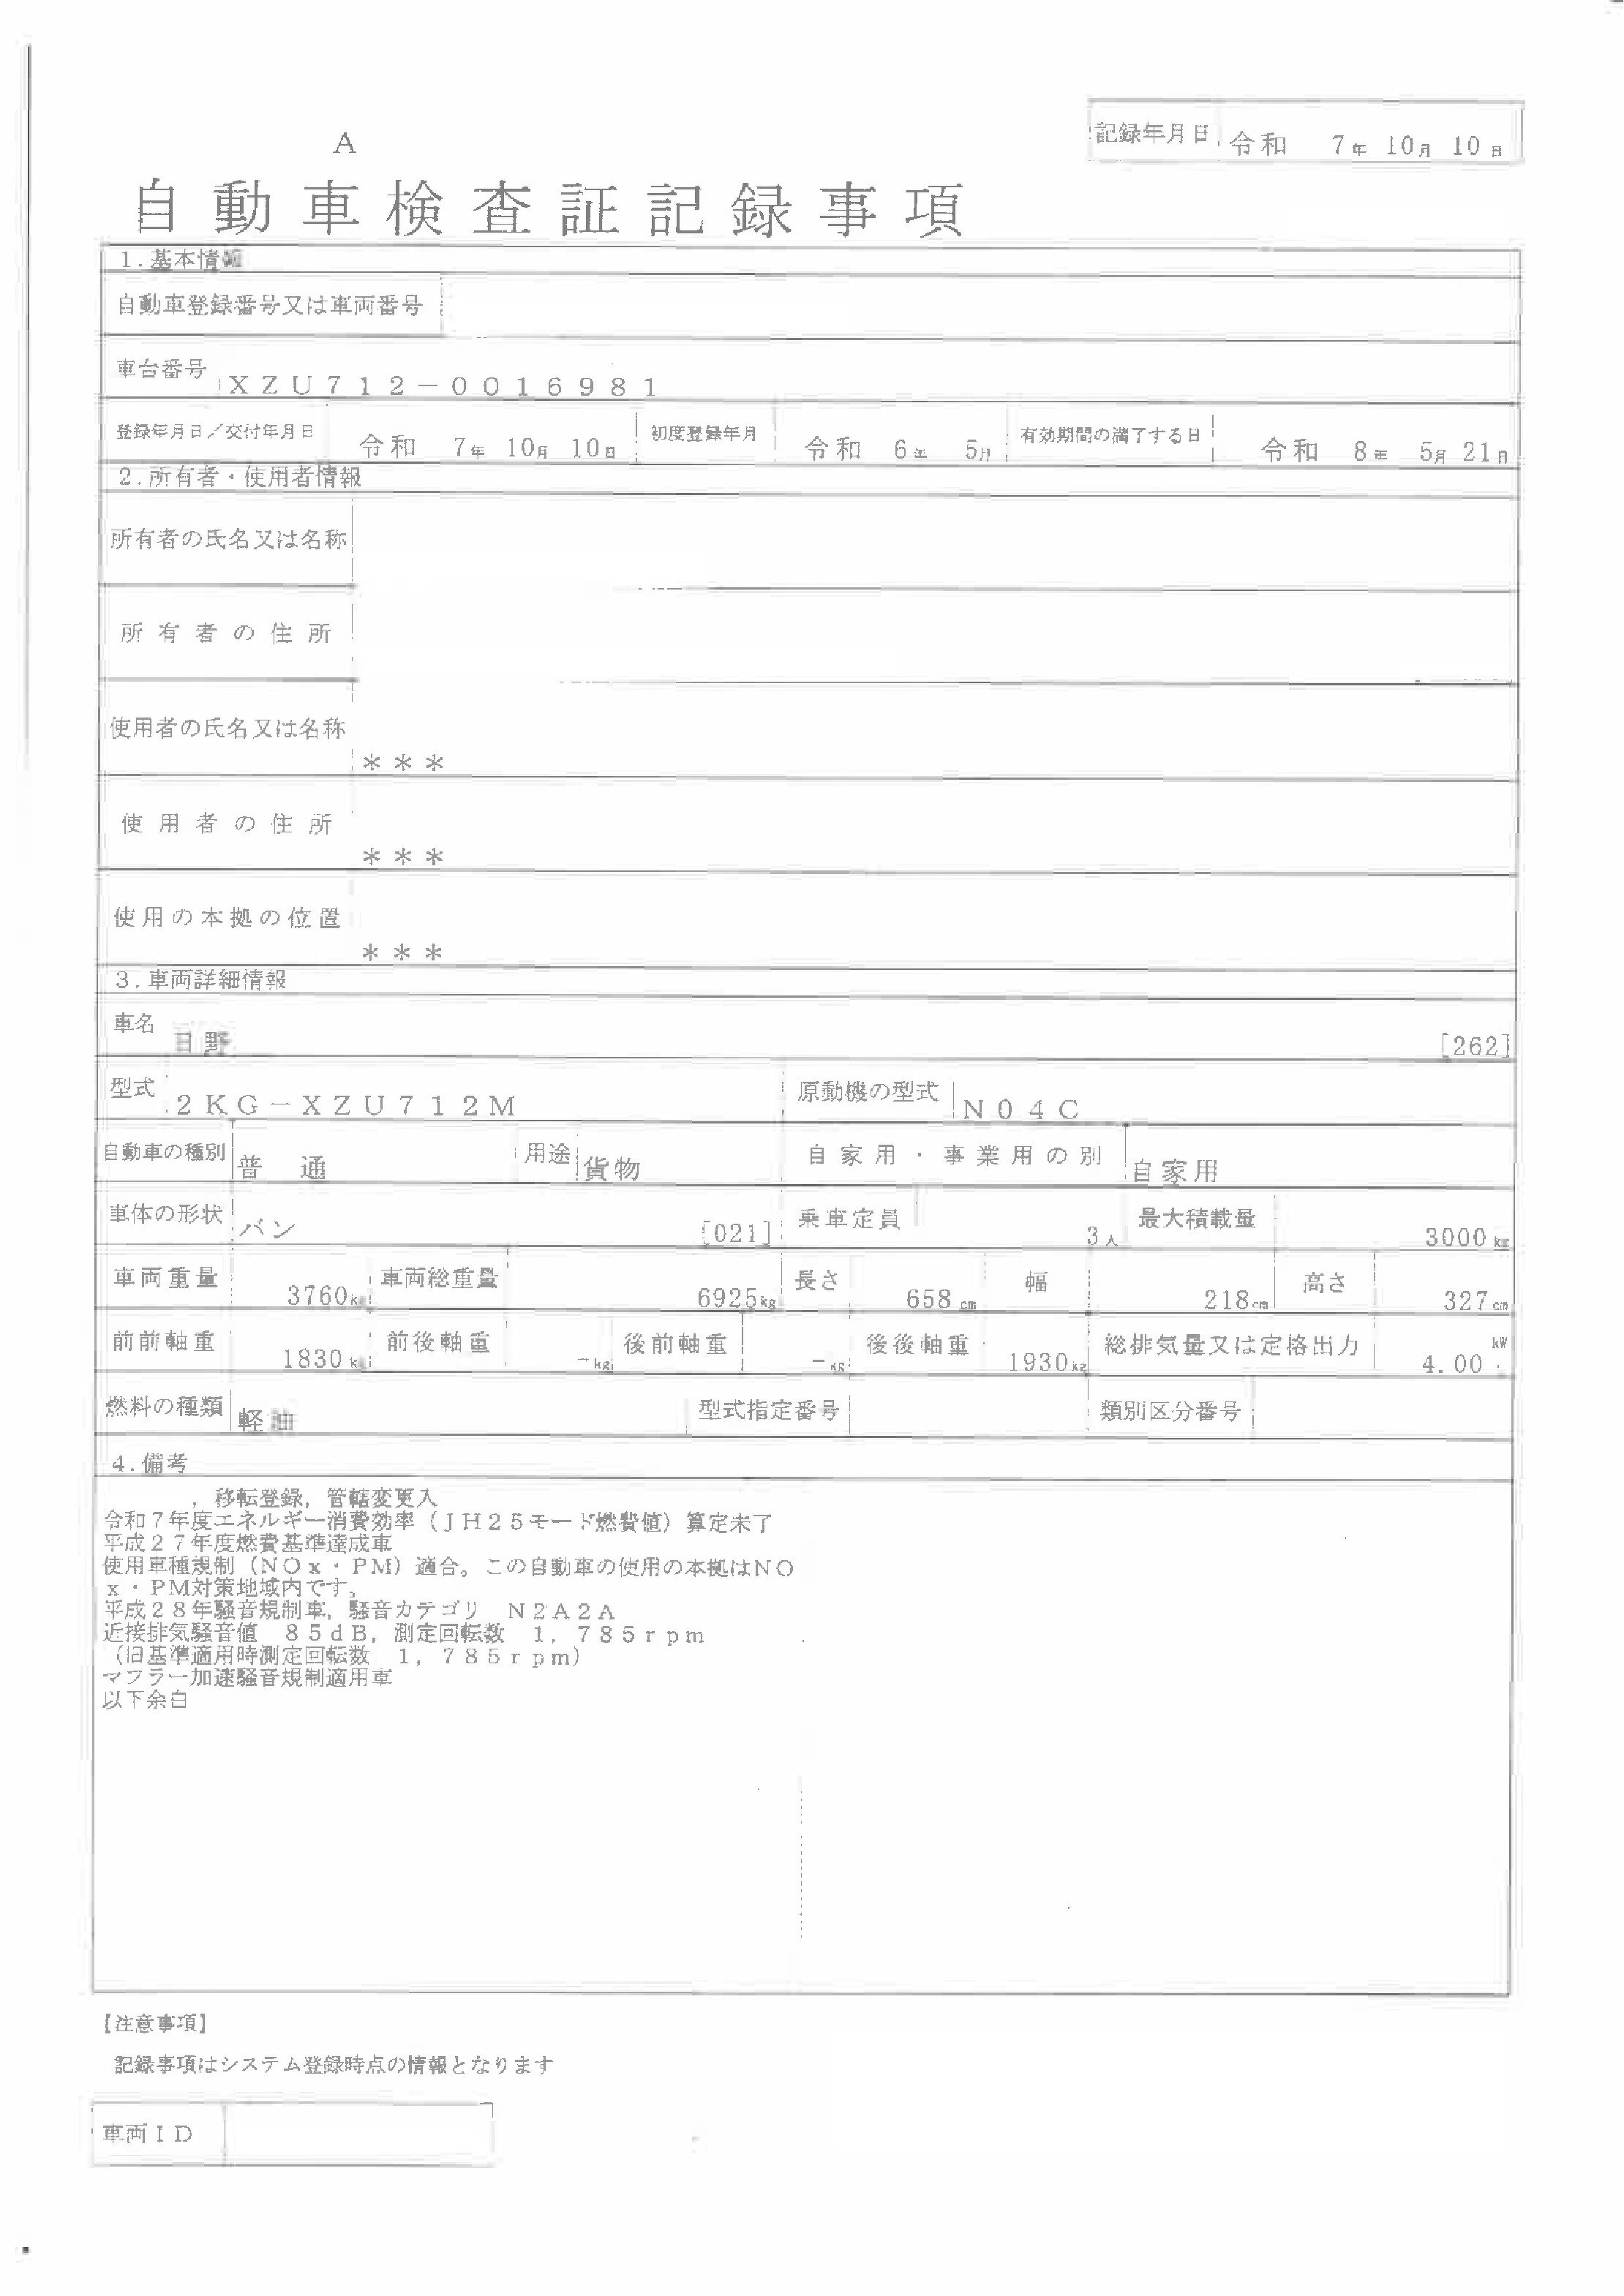 A
記録年月日 令和 7年 10月 10日
自動車検査証記録事項
1.基本情報
自動車登録番号又は車両番号
車台番号 XZU712-0016981
登録年月日/交付年月日 令和 7年 10月 10日 初度登録年月 令和 6年 5月 有効期間の満了する日 令和 8年 5月 21日
2.所有者・使用者情報
所有者の氏名又は名称
所有者の住所
使用者の氏名又は名称 ***
使用者の住所 ***
使用の本拠の位置 ***
3.車両詳細情報
車名 日野 [262]
型式 2KG-XZU712M 原動機の型式 N04C
自動車の種別 普通 用途 貨物 自家用・事業用の別 自家用
車体の形状 バン [021] 乗車定員 3人 最大積載量 3000kg
車両重量 3760kg 車両総重量 6925kg 長さ 658cm 幅 218cm 高さ 327cm
前前軸重 1830kg 前後軸重 -kg 後前軸重 -kg 後後軸重 1930kg 総排気量又は定格出力 4.00 kW
燃料の種類 軽油 型式指定番号 類別区分番号
4.備考
,移転登録,管轄変更入
令和7年度エネルギー消費効率(JH25モード燃費値)算定未了
平成27年度燃費基準達成車
使用車種規制(NOx・PM)適合。この自動車の使用の本拠はNO
x・PM対策地域内です。
平成28年騒音規制車,騒音カテゴリ N2A2A
近接排気騒音値 85dB,測定回転数 1,785rpm
(旧基準適用時測定回転数 1,785rpm)
マフラー加速騒音規制適用車
以下余白
【注意事項】
記録事項はシステム登録時点の情報となります
車両ID